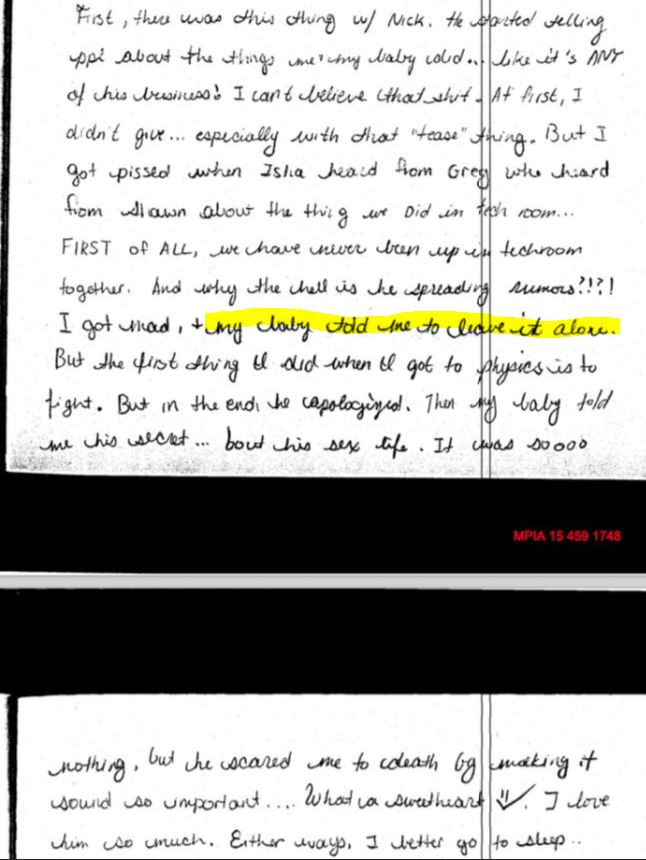 First, there was this thing w/ Nick. He started telling
ppl about the things me + my baby did... like it's ANY
of his business! I can't believe that shit. At first, I
didn't give... especially with that "tease" thing. But I
got pissed when Isha heard from Greg who heard
from Shawn about the thing we Did in tech room...
FIRST of ALL, we have never been up in techroom
together. And why the hell is he spreading rumors?!?!
I got mad, + my baby told me to leave it alone.
But the first thing I did when I got to physics is to
fight. But in the end, he apologized. Then my baby told
me his secret... bout his sex life. It was soooo
MPIA 15 459 1748
nothing, but he scared me to death by making it
sound so important.... What a sweetheart. I love
him so much. Either ways, I better go to sleep..